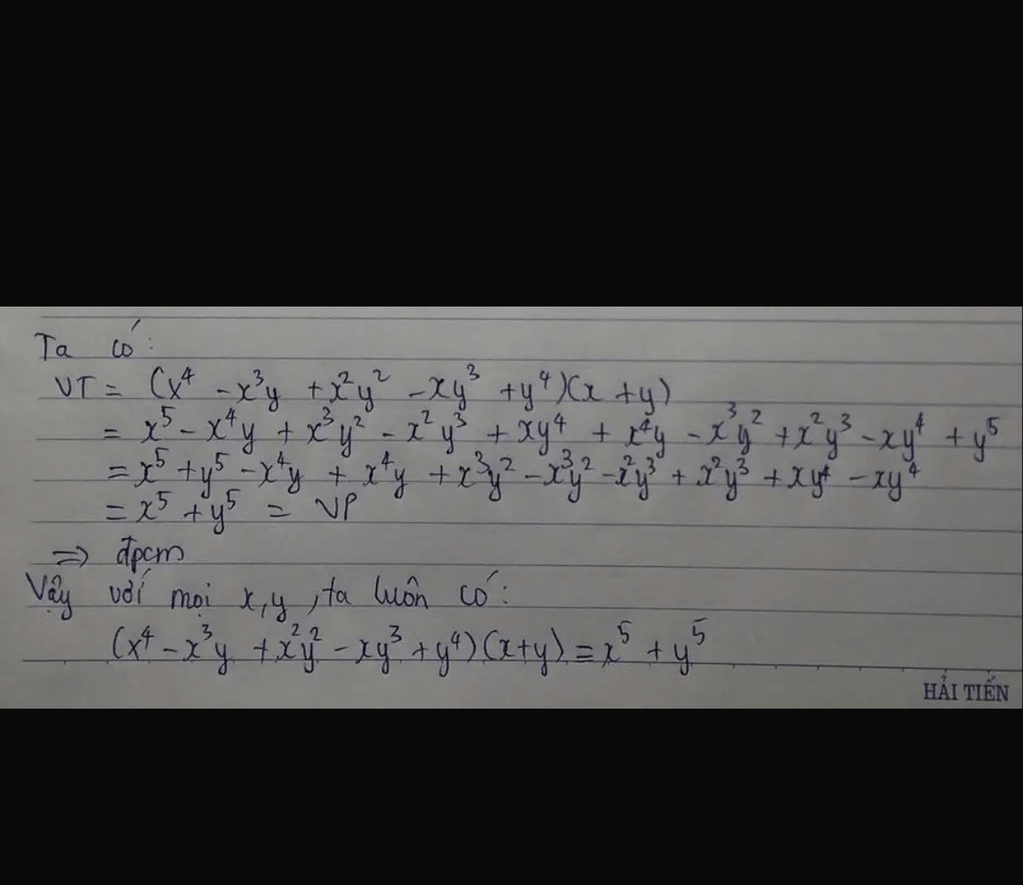 Ta có:
VT = (x⁴ - x³y + x²y² - xy³ + y⁴)(x + y)
= x⁵ - x⁴y + x³y² - x²y³ + xy⁴ + x⁴y - x³y² + x²y³ - xy⁴ + y⁵
= x⁵ + y⁵ - x⁴y + x⁴y + x³y² - x³y² - x²y³ + x²y³ + xy⁴ - xy⁴
= x⁵ + y⁵ = VP
=> đpcm
Vậy với mọi x, y, ta luôn có:
(x⁴ - x³y + x²y² - xy³ + y⁴)(x+y) = x⁵ + y⁵
HẢI TIẾN